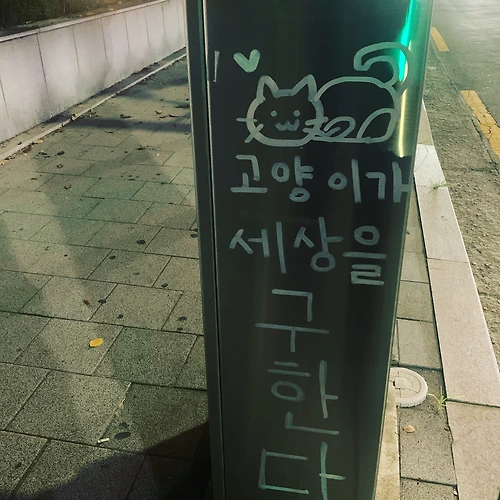 I ♥
고양이가
세상을
구
한
다